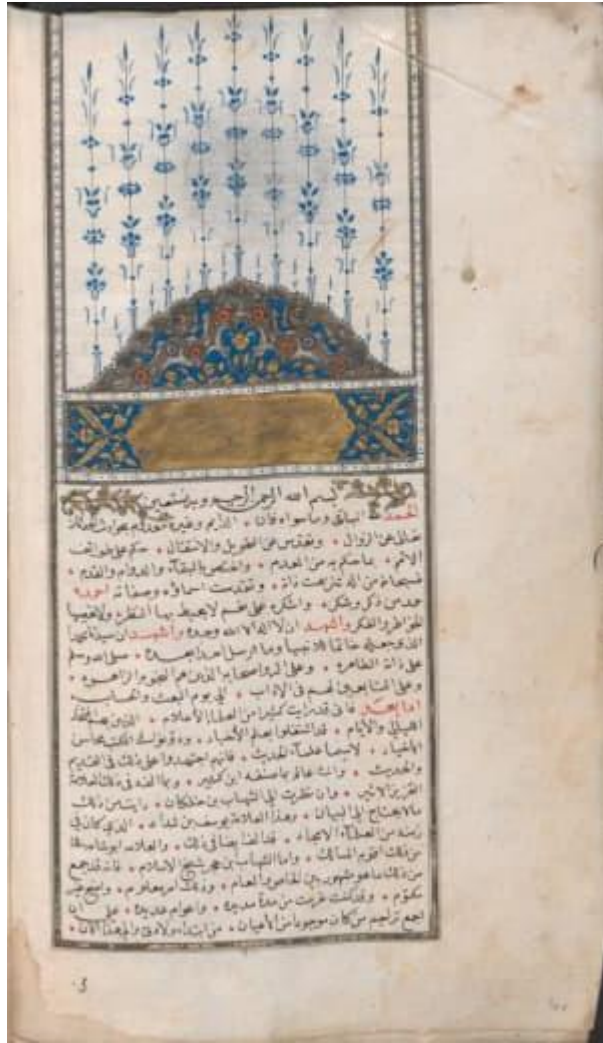 بسم الله الرحمن الرحيم وبه نستعين
الحمد لله الباقي وما سواه فان ٠ الدايم وغيره
تعالى عن الزوال ٠ وتقدس عن التحويل والانتقال ٠ حكم على طوائف
الامم ٠ بما حكم به من العدم ٠ واختص بالبقآء والدوام والقدم ٠
فسبحانه من اله تنزهت ذاته ٠ وتقدست اسماؤه وصفاته احمده
حمد من ذكر وشكر ٠ واشكره على نعم لا يحيط بها النظر ولا تحصيها
الخواطر والفكر واشهد ان لا اله الا الله وحده واشهد ان سيدنا محمدا
الذي جعله خاتما لانبيا وما ارسل احدا بعده ٠ صلى الله وسلم
على ذاته الطاهره ٠ وعلى اله واصحابه الذين هم النجوم الزاهره ٠
وعلى التابعين لهم في الاداب ٠ الى يوم البعث والحساب
اما بعد فاني قد رايت كثيرا من العلمآء الأعلام ٠ الذين
الليالي والأيام ٠ قد اشتغلوا بعلم الأخبار ٠ ودونوا تلك الكتب محاسن
الأخيار ٠ لا سيما علمآء الحديث ٠ فانهم اجتهدوا على ذلك في القديم
والحديث ٠ وانت عالم بما صنفه ابن كثير ٠ وبما الفه في ذلك العلامة
العزيز الاثير ٠ وان نظرت الى الشهاب بن خلكان ٠ رايت من ذلك
ما لا يحتاج الى البيان ٠ وهذا العلامة يوسف بن شداد ٠ الذي كان في
زمنه من العلمآء الامجاد ٠ قد الف ايضا في ذلك ٠ والعلامه ابو شامه
من ذلك اقوم المسالك ٠ واما الشهاب بن حجر شيخ الاسلام ٠ فانه قد جمع
من ذلك ما هو مشهور بين الخاص والعام ٠ وذلك امر معلوم ٠ واضح غير
مكتوم ٠ وقد كنت عزمت من مدة مديدة ٠ واعوام عديدة ٠ على ان
اجمع تراجم من كان موجودا من الأعيان ٠ من ابتداء مولدي والى هذا الآن ٠